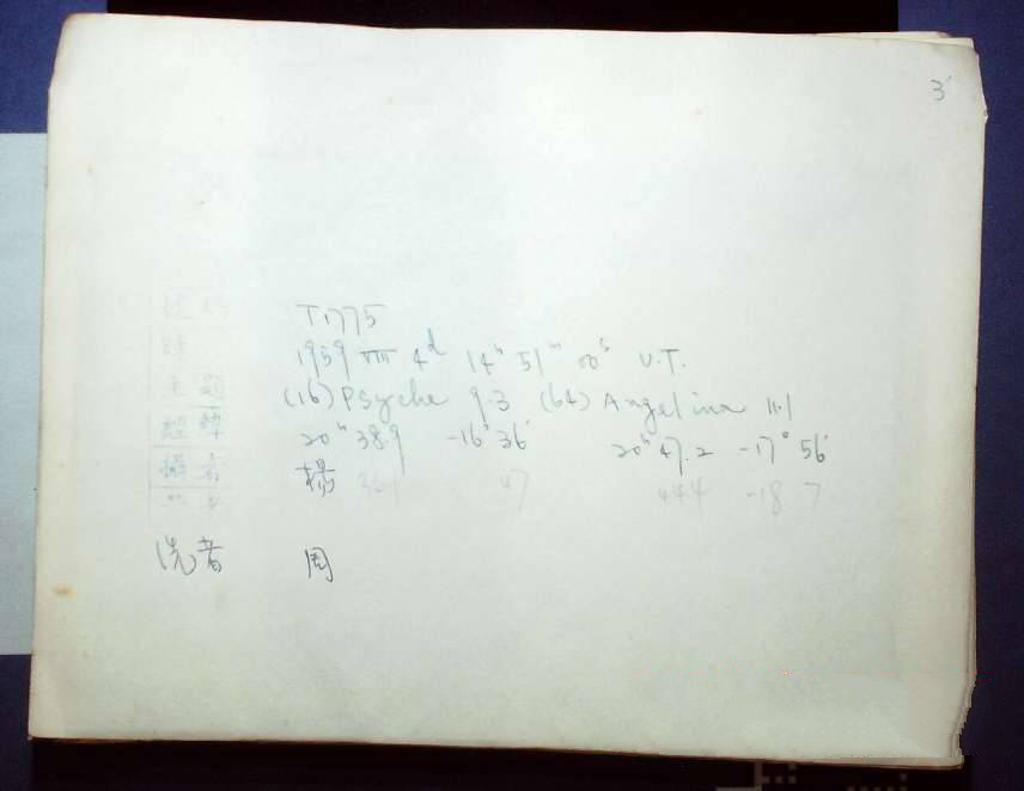 3
T1775
1959 VIII 4d 14h 51m 00s U.T.
(16) Psyche 9.3 (64) Angelina 11.1
20h 38.9 -16° 36' 20h 47.2 -17° 56'
楊 47 444 -18 7
洗者 周